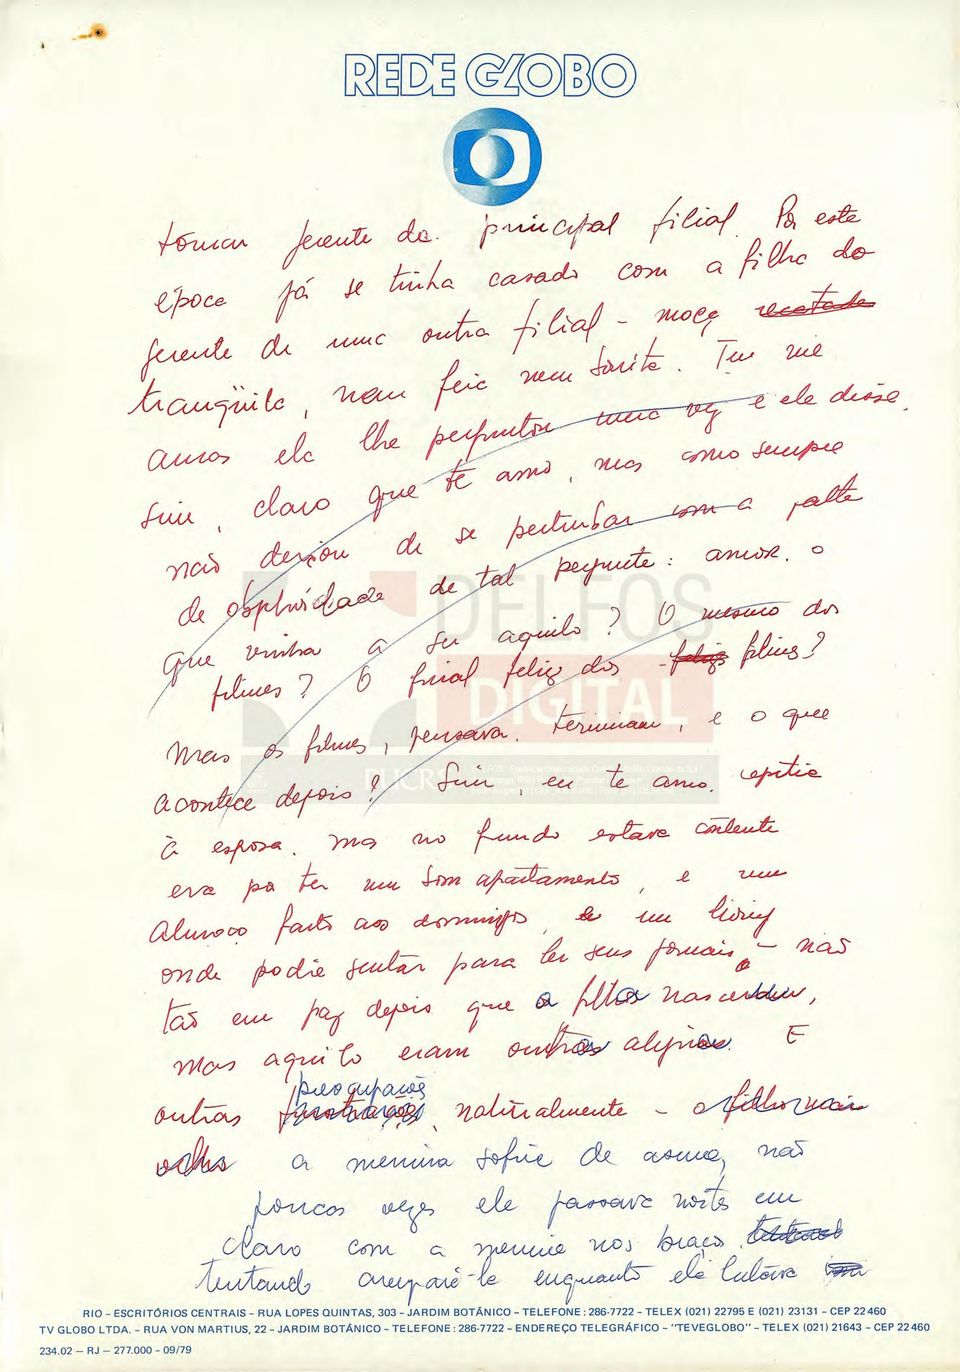 REDE GLOBO
tornar gerente da principal filial. Por esta
época já se tinha casado com a filha do
gerente de uma outra filial - moça recatada
tranqüila, nem feia nem bonita. Tu me
amas ela lhe perguntou uma vez e ele disse,
sim, claro que te amo, mas como sempre
não deixou de se perturbar com a falta
de objetividade de tal pergunta: amor. o
que vinha a ser aquilo? O mesmo dos
filmes? O final feliz dos filmes?
Mas os filmes, pensava, terminam, e o que
acontece depois? Sim, eu te amo. repetia
à esposa. mas no fundo estava contente
era por ter um bom apartamento, e um
almoço farto aos domingos, e um living
onde podia sentar para ler seus jornais - não
tão em paz depois que a filha nasceu,
mas aquilo eram outras alegrias. E
preocupações
outras frustrações, naturalmente - o filho mais
velho a menina sofria de asma, não
poucas vezes ele passava noites em
claro com a menina nos braços,
tentando ampará-la enquanto ela lutava
DELFOS
DIGITAL
PUCRS
RIO - ESCRITÓRIOS CENTRAIS - RUA LOPES QUINTAS, 303 - JARDIM BOTÂNICO - TELEFONE: 286-7722 - TELEX (021) 22795 E (021) 23131 - CEP 22460
TV GLOBO LTDA. - RUA VON MARTIUS, 22 - JARDIM BOTÂNICO - TELEFONE: 286-7722 - ENDEREÇO TELEGRÁFICO - "TEVEGLOBO" - TELEX (021) 21643 - CEP 22460
234.02 - RJ - 277.000 - 09/79